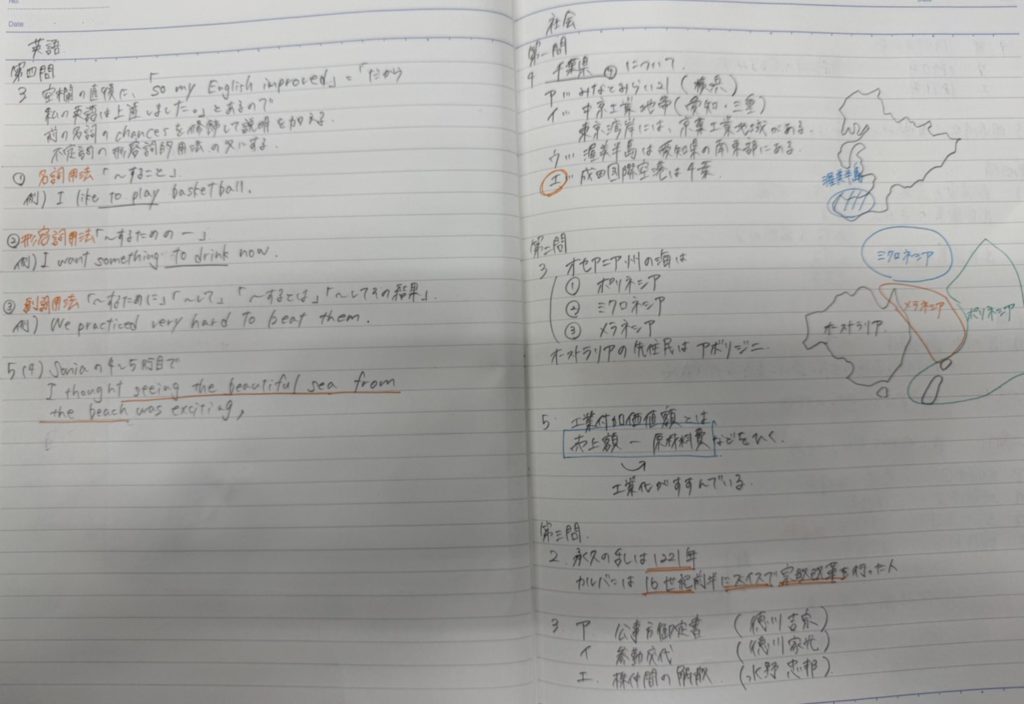 No.
Date
英語
第四問
3 空欄の直後に、「so my English improved」=「だから
私の英語は上達しました。」とあるので
前の名詞のchancesを修飾して説明を加える
不定詞の形容詞的用法の文にする。
① 名詞用法「〜すること」
例) I like to play basketball.
②形容詞用法「〜するための一」
例) I want something to drink now.
③ 副詞用法「〜するために」「〜して」「〜するとは」「〜してその結果」
例) We practiced very hard to beat them.
5 (4) Soniaの4〜5行目で
I thought seeing the beautiful sea from
the beach was exciting,
社会
第一問
4 千葉県 について.
ア… みなとみらい21 (
イ… 中京工業地帯(愛知・三重)
東京湾岸には、京葉工業地域がある.
ウ… 渥美半島は愛知県の南東部にある.
エ… 成田国際空港は千葉.
渥美半島
第二問
3 オセアニア州の海は
① ポリネシア
② ミクロネシア
③ メラネシア
オーストラリアの先住民は アボリジニ
ミクロネシア
メラネシア
ポリネシア
オーストラリア
5 工業付加価値額とは
売上額 − 原材料費などをひく.
工業化がすすんでいる.
第三問.
2. 承久の乱は1221年
カルバンは 16世紀前半にスイスで宗教改革を行った人
3. ア 公事方御定書 (徳川吉宗)
イ 参勤交代 (徳川家光)
エ. 株仲間の解散 (水野忠邦)